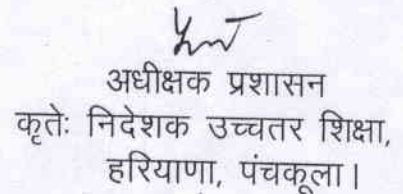 अधीक्षक प्रशासन
कृतेः निदेशक उच्चतर शिक्षा,
हरियाणा, पंचकूला।